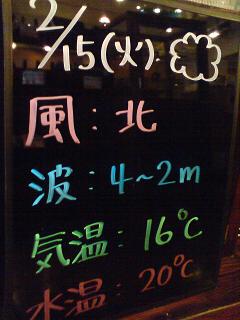 2/15(火)
風：北
波：4~2m
気温：16℃
水温：20℃